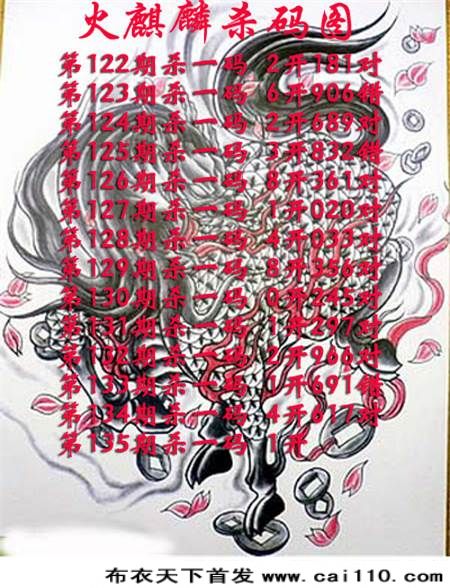 火麒麟杀码图
第122期杀一码 2开181对
第123期杀一码 6开906错
第124期杀一码 2开689对
第125期杀一码 3开832错
第126期杀一码 8开361对
第127期杀一码 1开020对
第128期杀一码 4开033对
第129期杀一码 8开356对
第130期杀一码 0开245对
第131期杀一码 1开297对
第132期杀一码 2开966对
第133期杀一码 1开691错
第134期杀一码 4开617对
第135期杀一码 1开
布衣天下首发 www.cai110.com